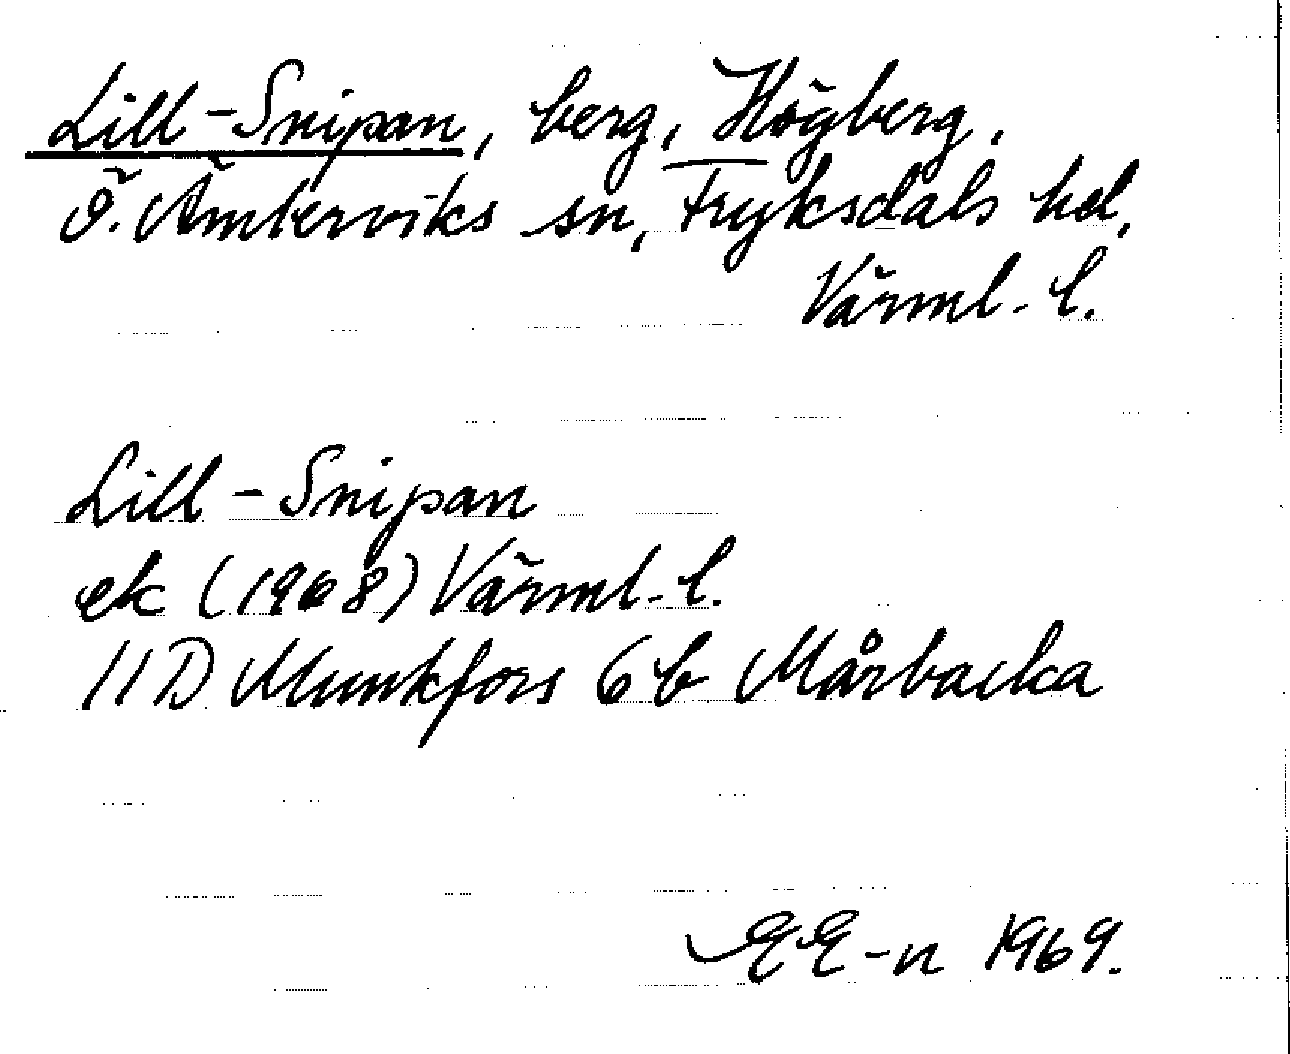 Lill-Snipan, berg, Högberg,
Ö. Ämterviks sn, Fryksdals hd,
Värml. l.
Lill-Snipan
ek (1968) Värml. l.
11D Munkfors 6b Mårbacka
EE-n 1969.